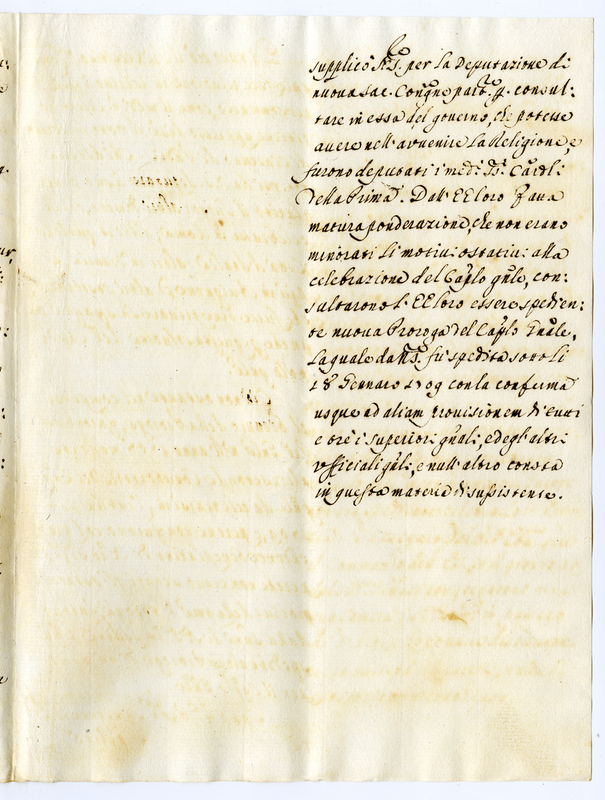 supplicò N. S. per la Deputazione di
nuova Sac. Congne part. pp. consul:
tare in essa del governo, che potesse
avere nell'avvenire la Religione, e
furono deputati i medi. SS. Cardli
della Prima. Dall'EE loro fatta
matura ponderazione, che non erano
minorati li motivi ostativi alla
celebrazione del Caplo gnle, con:
sultarono l'EE loro essere spedien:
te nuova Proroga del Caplo Gnale,
la quale da N. S. fu spedita sotto li
18 Gennaro 1709 con la conferma
usque ad aliam provisionem di tutti
e tre i superiori gnali, e degl'altri
officiali gnli, e null'altro consta
in questa materia di sussistente.